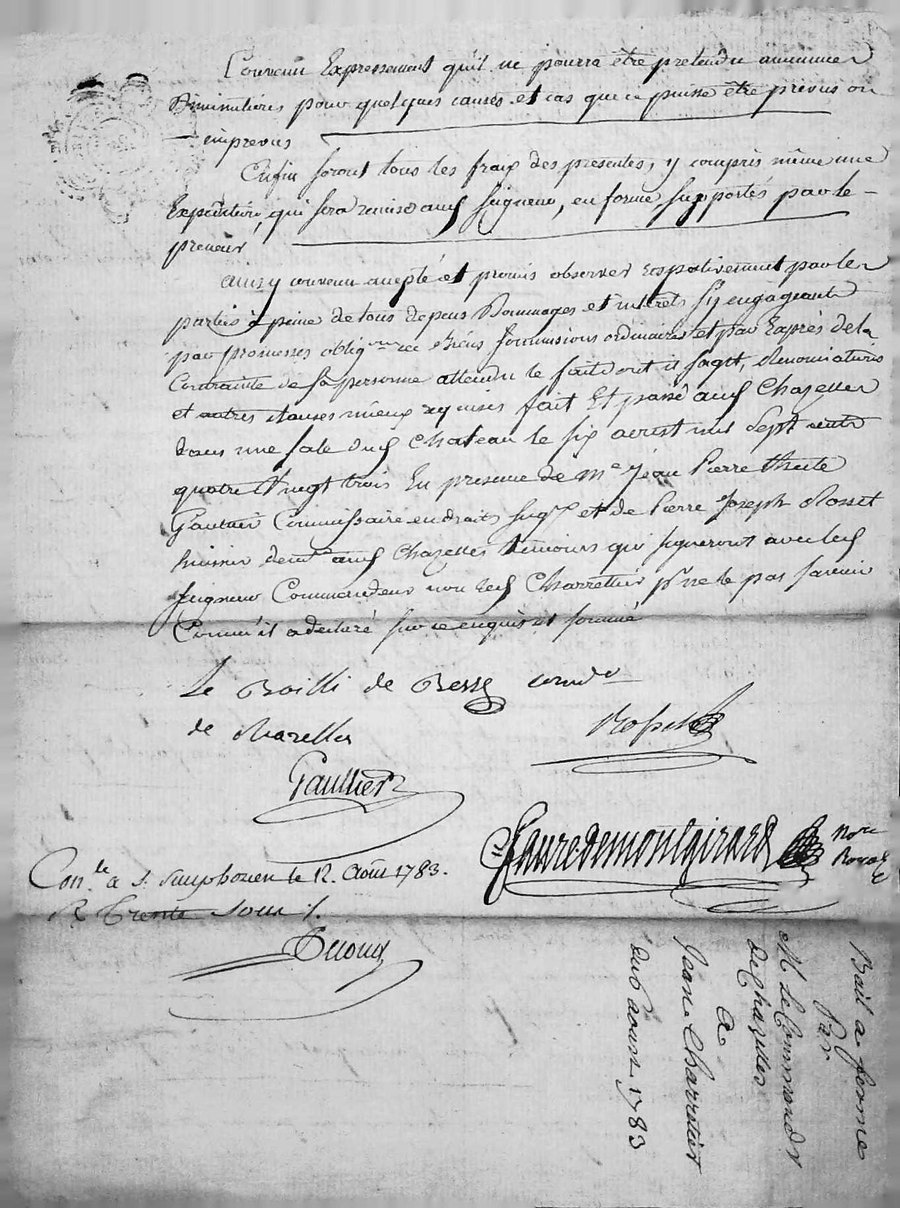 Convenu Expressement qu'il ne pourra être pretendu aucunnes
Diminutions pour quelques causes et cas que ce puisse être prevus ou
imprevus
Enfin seront tous les fraix des presentes, y compris même une
Expedition, qui sera remise aud Seigneur, en forme supportés par le
preneur
Ainsy convenu accepté et promis observer respectivement par les
parties à peine de tous depens Dommages et interets s'y engageants
par promesses oblig.on de Biens soumissions ordinaires et par Exprès de la
Contrainte de sa personne attendu le fait dont il sagit, Renonciations
et autres clauses mieux requises fait Et passé aud Chazelles
dans une sale dud Chateau le six aoust mil Sept cents
quatre Vingt trois En presence de Me Jean Pierre
Gaultier Commissaire en droits Seig.x et de Pierre Joseph Rosset
huissier demt aud Chazelles temoins qui signeront avec led
Seigneur Commandeur non led Charrettier pr ne le pas savoir
Comm'il a declaré sur ce enquis et sommé
Le Bailli de Besse comdr
de Chazelles
Rosset
Gaultier
Fauredemontgirard Nore
Royal
Con.lé a S. Simphorien le 12. Aout 1783.
R Trente Sous
Bail a ferme
Par
M. Le Command.r
de Chazelles
A
Jean Charretier
du 6 aoust 1783